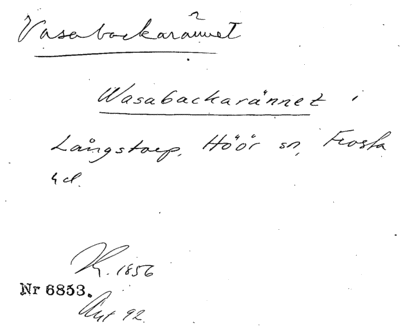 Vasabackarännet
Wasabackarännet i
Långstorp, Höör sn, Frosta
hd.
K. 1856
Nr 6853.
Akt 92.